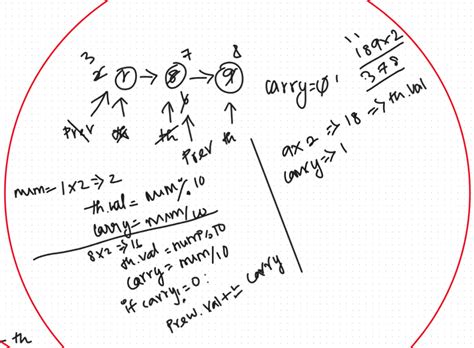 3 7 8
2 1 → 8 → 9
6
prev th th
prev th
carry=0 1
11
189x2
378
9x2 => 18 => th.val
carry => 1
num= 1x2 => 2
th.val = num%10
carry = num/10
8x2 => 16
th.val = num%10
carry = num/10
if carry != 0:
prev.val += carry
th